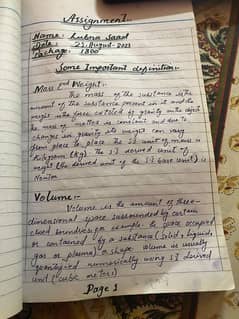 Assignment
Name:- Lubna Saad
Date:- 23, August-2023
Package:- 1800
Some Important definition:-
Mass and Weight:-
The mass of the substance is the
amount of the substance present in it and the
weight is the force exerted by gravity on the object
the mass of matter is constant but due to
changes in gravity its weight can vary
from place to place. The SI unit of mass is
Kilogram (kg). The SI derived unit of
weight (the derived unit of the SI base unit) is
Newton.
Volume:-
Volume is the amount of three-
dimensional space surrounded by certain
closed boundries for example the space occupied
or contained by a substance (solid, liquid,
gas or plasma) or shape. Volume is usually
quantified numerically using SI derived
unit (cubic meters)
Page 1